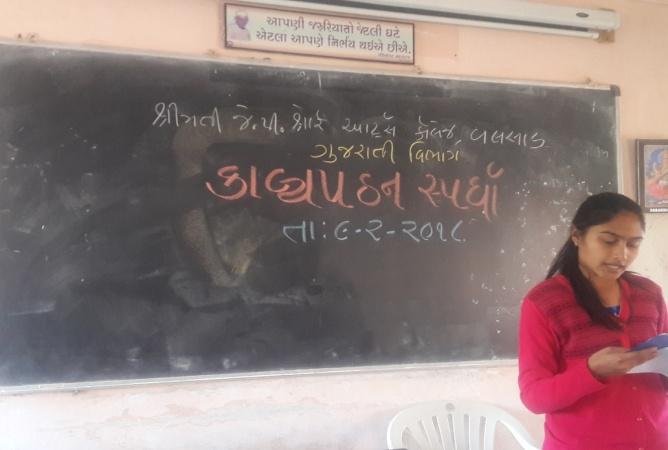 આપણી જરૂરિયાતો જેટલી ઘટે
એટલા આપણે નિર્ભય થઈએ છીએ.
શ્રીમતી જે.પી. શ્રોફ આર્ટ્સ કૉલેજ, વલસાડ
ગુજરાતી વિભાગ
કાવ્યપઠન સ્પર્ધા
તા:૯-૨-૨૦૧૮